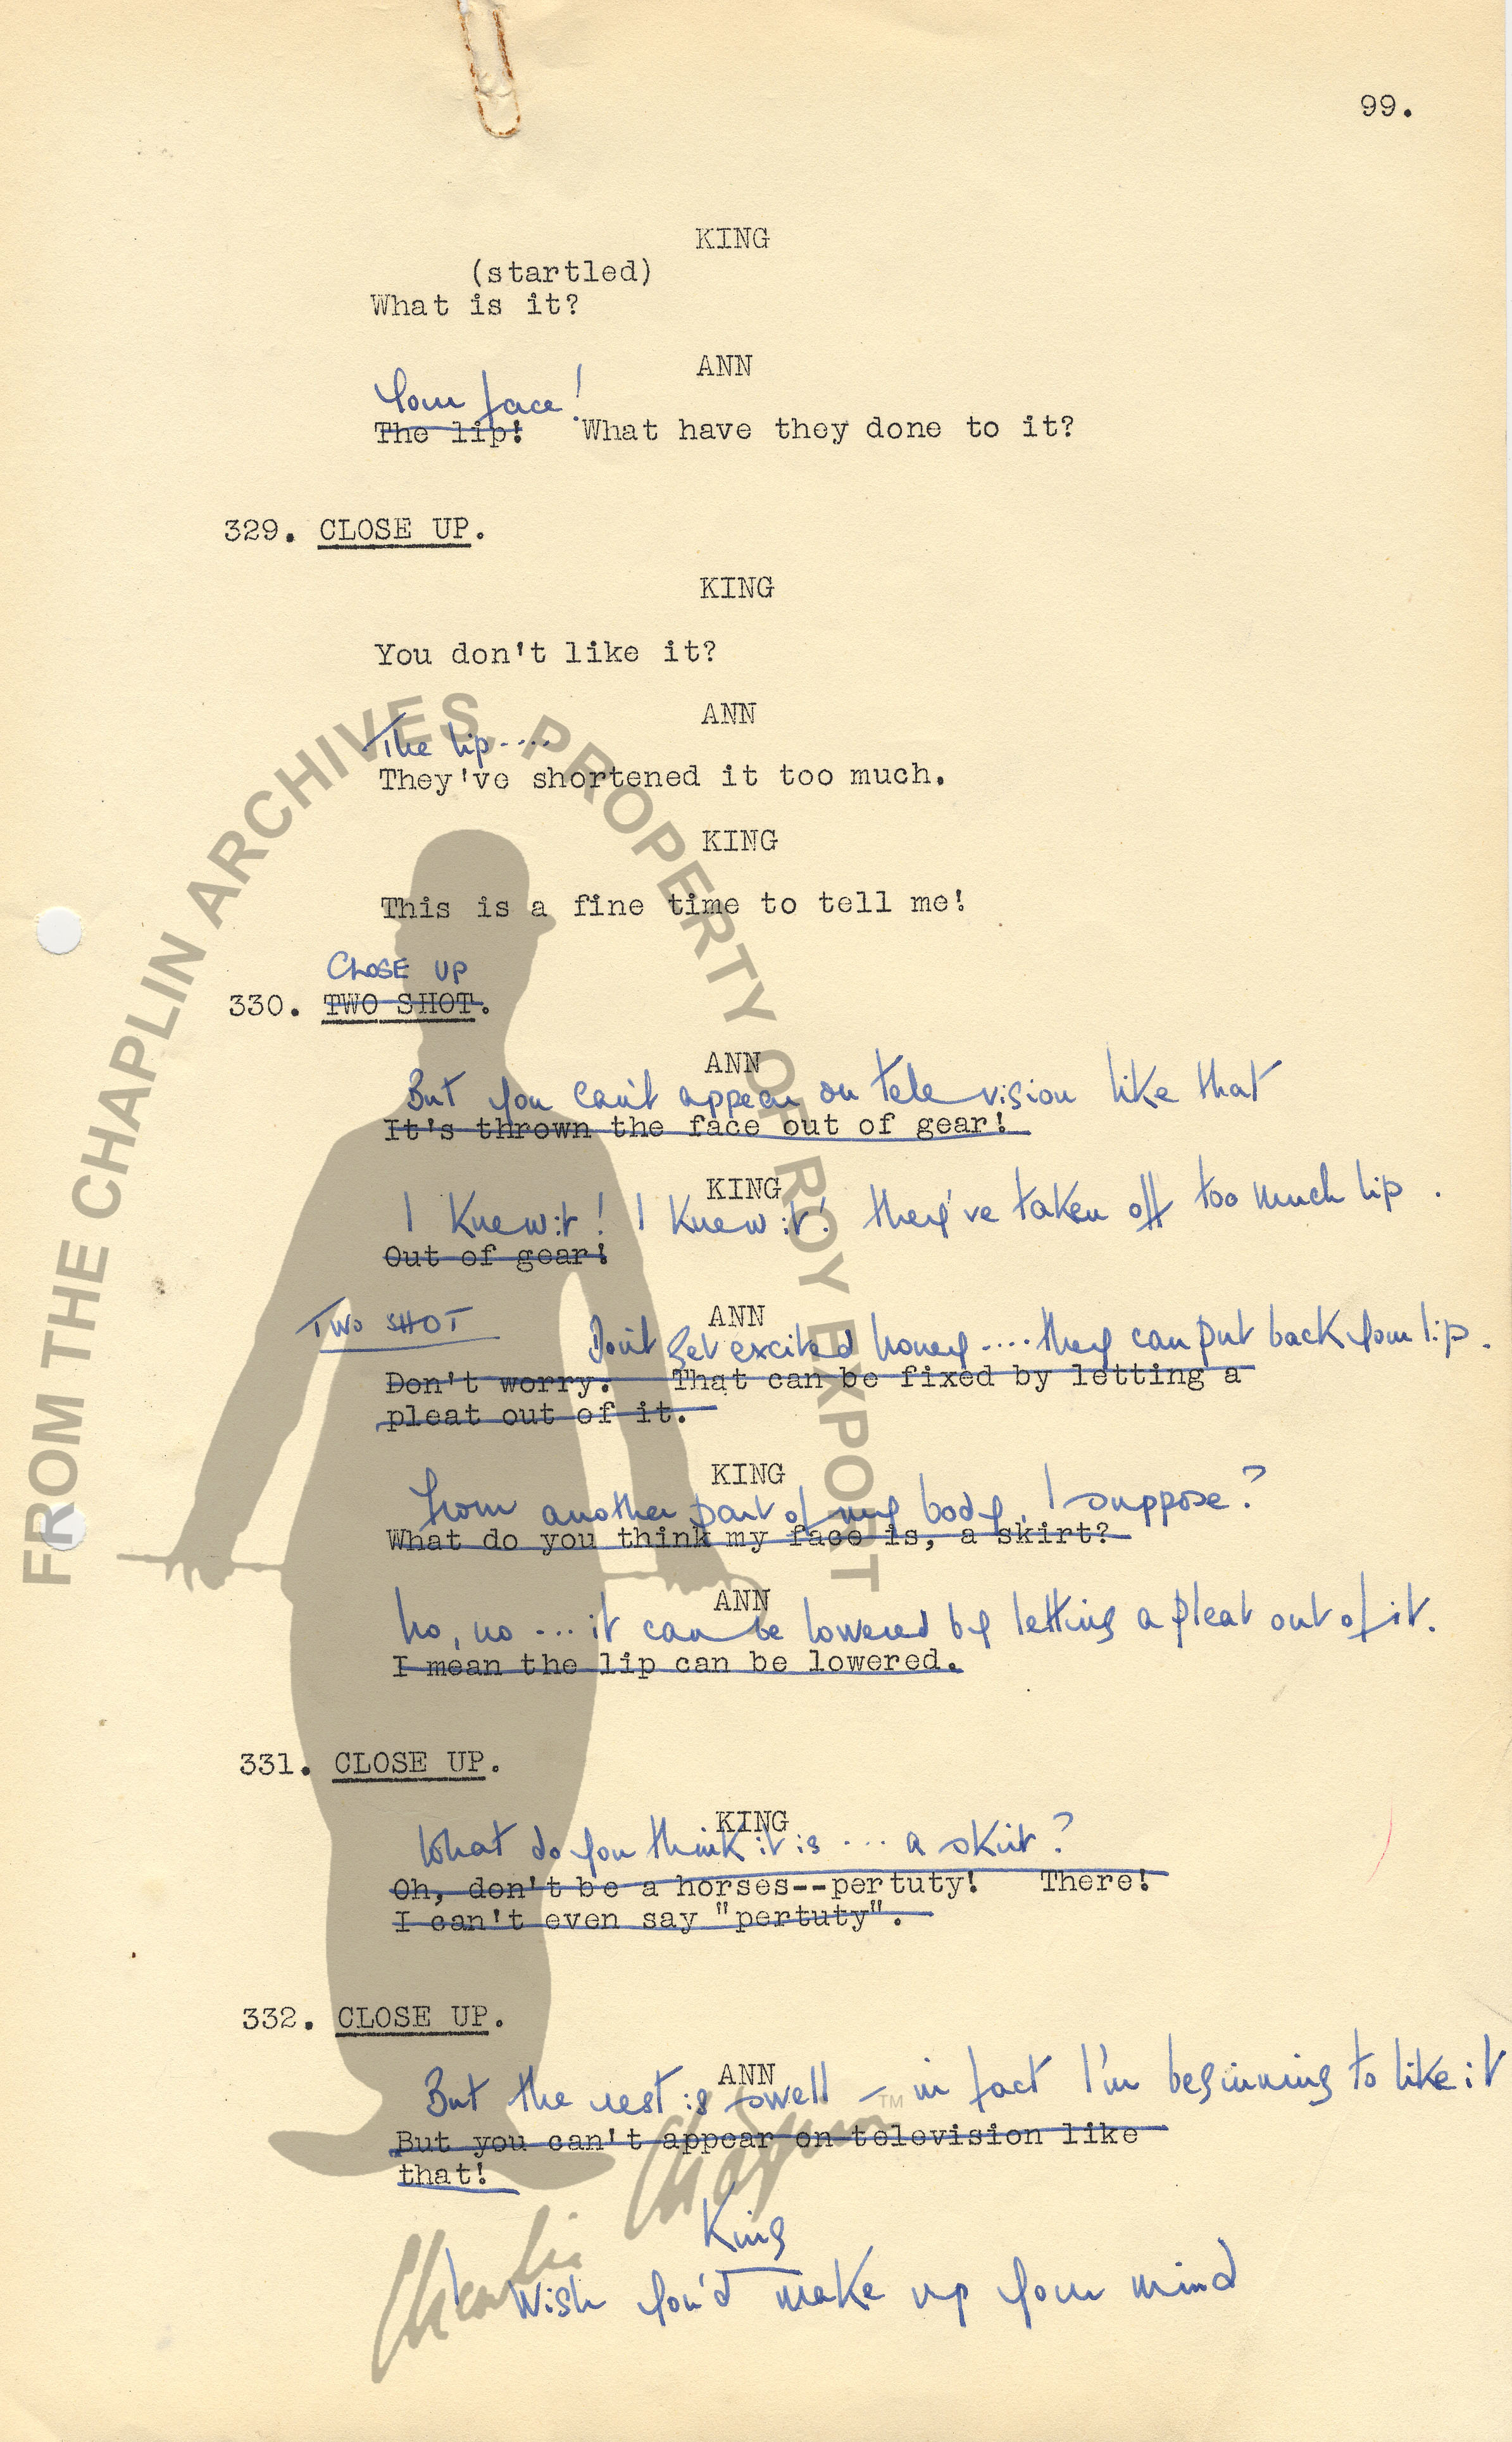 99.
KING
(startled)
What is it?
ANN
Your face!
The lip! What have they done to it?
329. CLOSE UP.
KING
You don't like it?
ANN
The lip....
They've shortened it too much.
KING
This is a fine time to tell me!
CLOSE UP
330. TWO SHOT.
ANN
But you can't appear on television like that
It's thrown the face out of gear!
KING
I knew it! I knew it! they've taken off too much lip.
Out of gear!
ANN
TWO SHOT Don't get excited honey .... they can put back your lip.
Don't worry. That can be fixed by letting a
pleat out of it.
KING
From another part of my body, I suppose?
What do you think my face is, a skirt?
ANN
No, no ... it can be lowered by letting a pleat out of it.
I mean the lip can be lowered.
331. CLOSE UP.
KING
What do you think it is ... a skirt?
Oh, don't be a horses--pertuty! There!
I can't even say "pertuty".
332. CLOSE UP.
ANN
But the rest is swell - in fact I'm beginning to like it
But you can't appear on television like
that!
King
I wish you'd make up your mind
FROM THE CHAPLIN ARCHIVES, PROPERTY OF ROY EXPORT
Charlie Chaplin TM